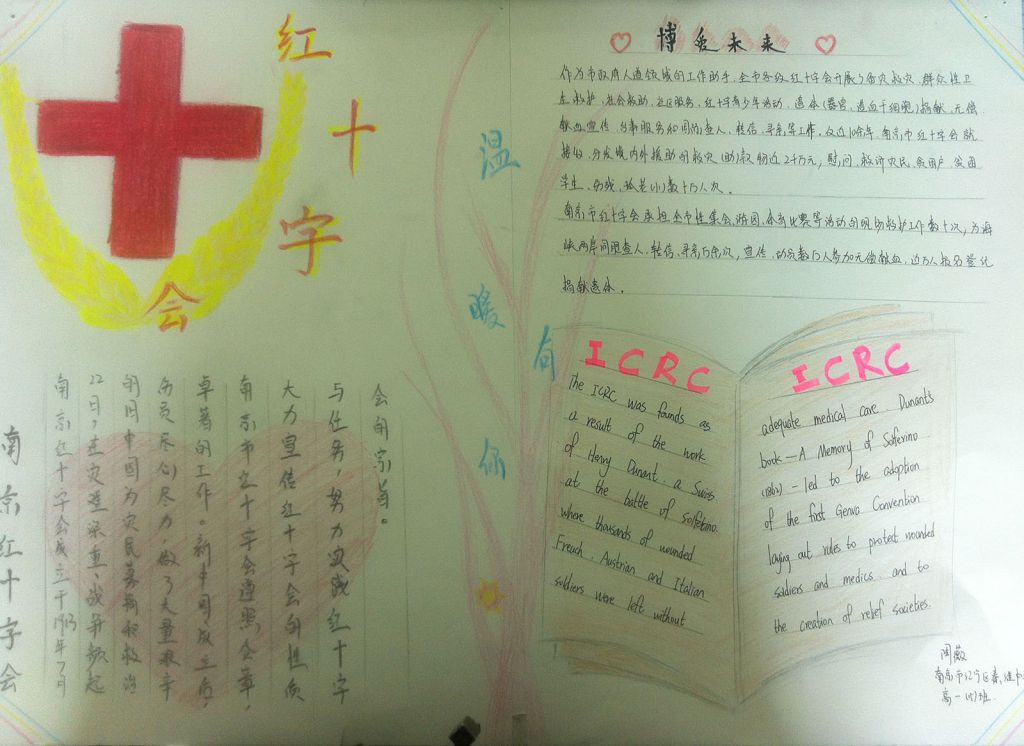 红
十
字
会
温
暖
向
你
博爱未来
作为市政府人道领域的工作助手,全市各级红十字会开展了备灾救灾、群众性卫
生救护、社会救助、社区服务、红十字青少年活动、遗体(器官、造血干细胞)捐献、无偿
献血宣传、台事服务和同胞查人、转信、寻亲等工作。仅近10余年,南京市红十字会就
接收、分发境内外援助的救灾(助)款物近2千万元,慰问、救济灾民、贫困户、贫困
学生、伤残、孤老(儿)数十万人次。
南京市红十字会承担全市性集会、游园、体育比赛等活动的现场救护工作数十次,为海
峡两岸同胞查人、转信、寻亲万余次,宣传、动员数万人参加无偿献血,近万人报名登记
捐献遗体。
ICRC
The ICRC was founds as
a result of the work
of Henry Dunant. a Swiss
at the battle of Solfetino.
where thousands of wounded
French. Austrian and Italian
soldiers were left without
ICRC
adequate medical care. Dunant's
book—A Memory of Solferino
(1862) - led to the adoption
of the first Genva Convention
laying out rules to protect wounded
soldiers and medics and to
the creation of relief societies.
南京红十字会
南京红十字会成立于1913年7月
22日,在灾难深重、战乱频起
的旧中国为灾民募捐和救治
伤员尽心尽力,做了大量艰辛
卓著的工作。新中国成立后,
南京市红十字会遵照会章,
大力宣传红十字会的性质
与任务,努力实践红十字
会的宗旨。
高一(5)班